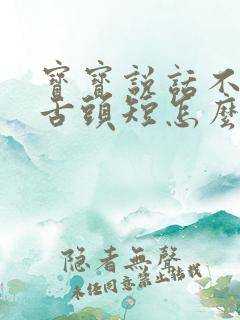 寶寶説話不
舌頭短怎麼
隐者無聲
未经同意禁止转载